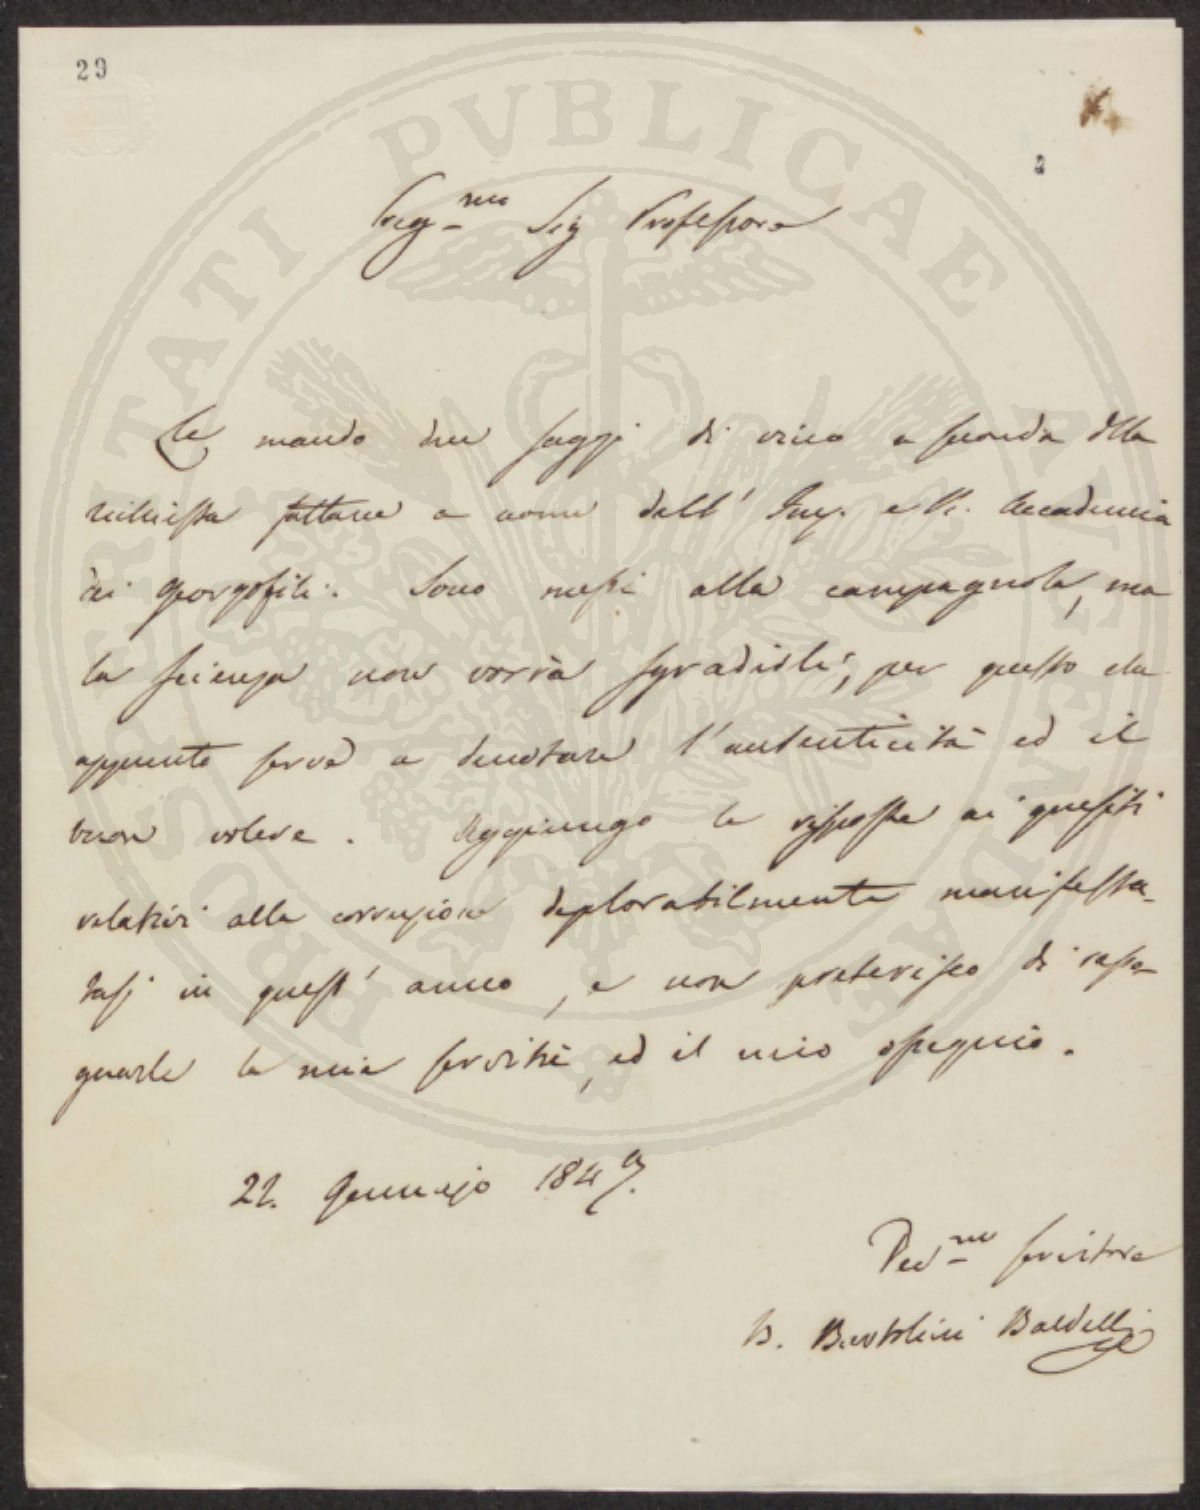 29
PROSPERITATI PVBLICAE AVGENDAE
2
Preg.mo Sig Professore
Le mando due saggi di vino a seconda della
richiesta fattane a nome dell' Imp. e R. Accademia
dei Georgofili. Sono messi alla campagnola, ma
la scienza non vorrà sgradirli, per questo che
appunto serve a denotare l'autenticità ed il
buon volere. Aggiungo le risposte ai quesiti
relativi alla corruzione deplorabilmente manifesta-
tasi in quest' anno, e non preterisco di rasse-
gnarle la mia servitù, ed il mio ossequio.
22. Gennajo 1847.
Dev.mo servitore
B. Bartolini Baldelli